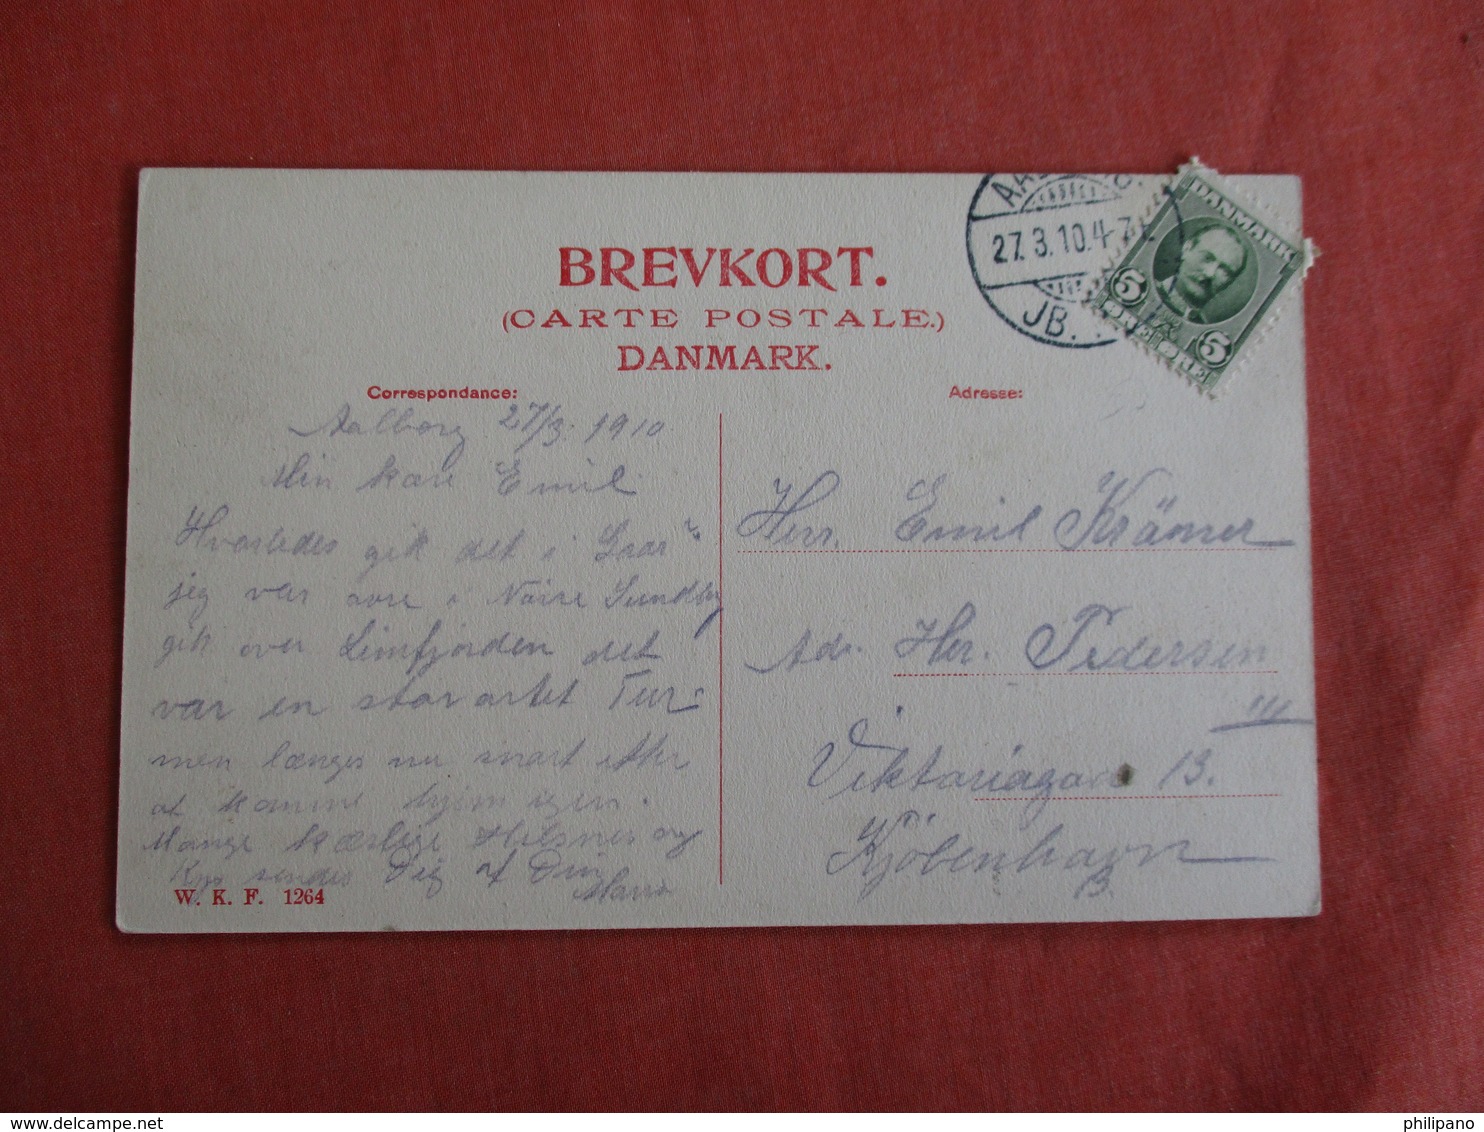 BREVKORT.
(CARTE POSTALE.)
DANMARK.
27.3.10.4-7E
JB.
DANMARK
5 5
Correspondance:
Adresse:
Aalborg 27/3. 1910
Min kære Emil
Hvorledes gik det i
jeg var ovre i Nørre Sundby
gik over Limfjorden det
var en stor artet Tur:
men længes nu snart efter
at komme hjem igen.
Mange kærlige Hilsner og
Kys sendes Dig af Din
W. K. F. 1264
Herr. Emil Krämer
Adr. Hr. Pedersen
Viktoriagade 13.
Kjöbenhavn
B.
philipano